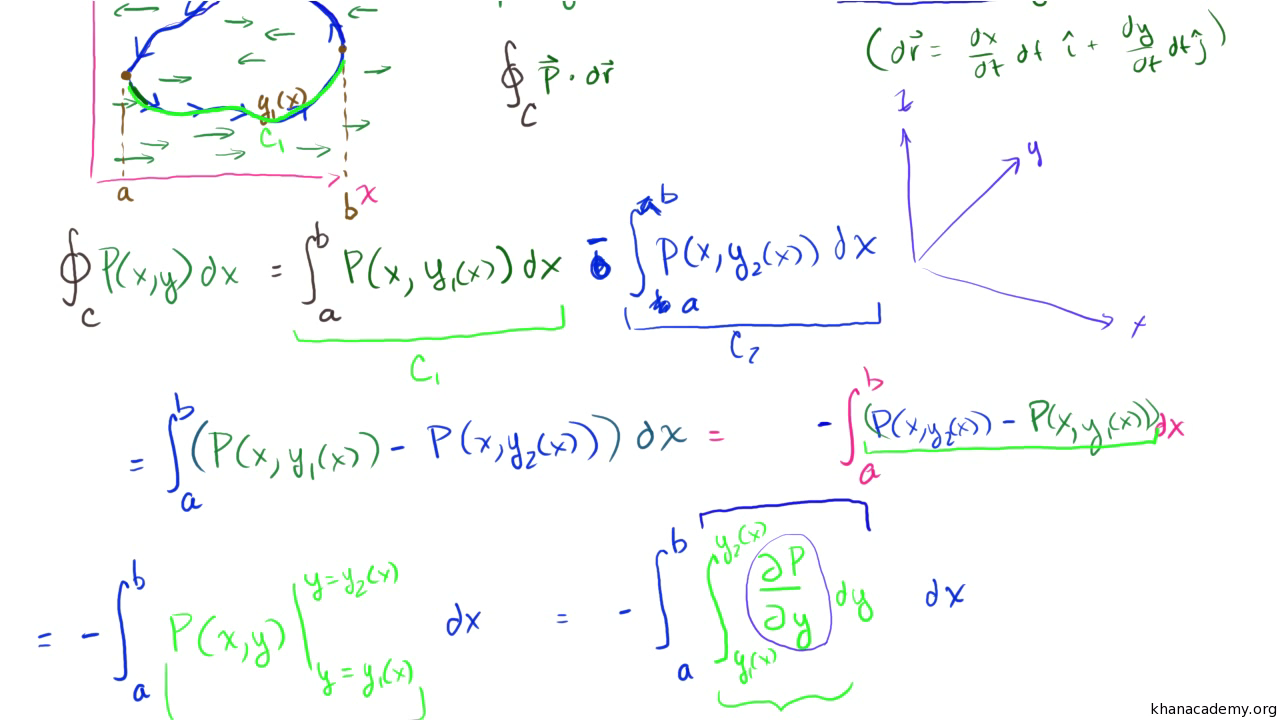 y₁(x)
C₁
a
b
x
∮_C P⃗ · dr⃗
(dr⃗ = dx/dt dt î + dy/dt dt ĵ)
z
y
x
∮_C P(x,y) dx = ∫_a^b P(x, y₁(x)) dx - ∫_a^b P(x, y₂(x)) dx
C₁
C₂
= ∫_a^b (P(x, y₁(x)) - P(x, y₂(x))) dx = - ∫_a^b (P(x, y₂(x)) - P(x, y₁(x))) dx
= - ∫_a^b P(x,y) |_{y = y₁(x)}^{y = y₂(x)} dx = - ∫_a^b ∫_{y₁(x)}^{y₂(x)} ∂P/∂y dy dx
khanacademy.org